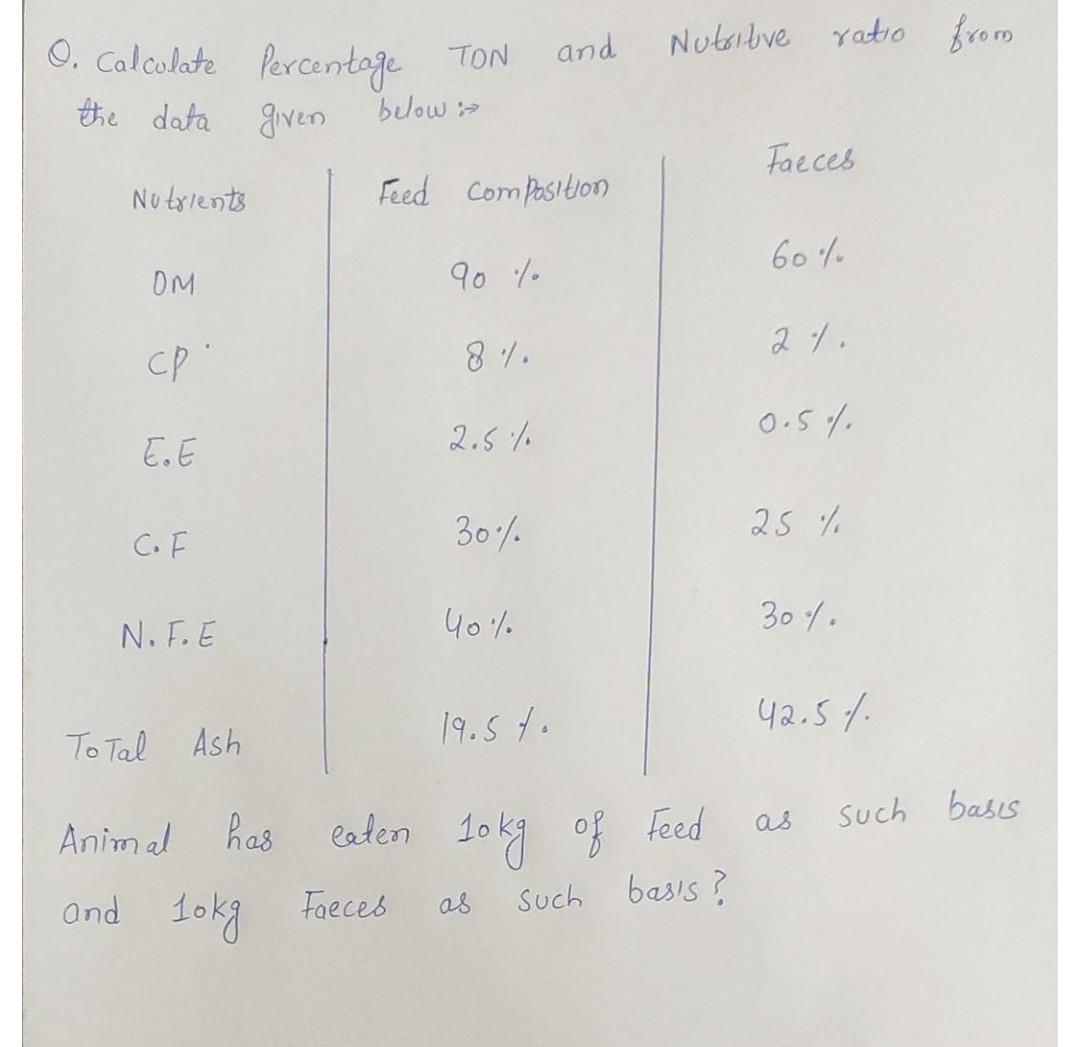 Q. Calculate Percentage TDN and Nutritive ratio from
the data given below :→
Nutrients Feed Composition Faeces
DM 90 % 60 %
CP 8 % 2 %
E.E 2.5 % 0.5 %
C.F 30 % 25 %
N.F.E 40 % 30 %
Total Ash 19.5 % 42.5 %
Animal has eaten 10kg of Feed as such basis
and 10kg Faeces as such basis ?